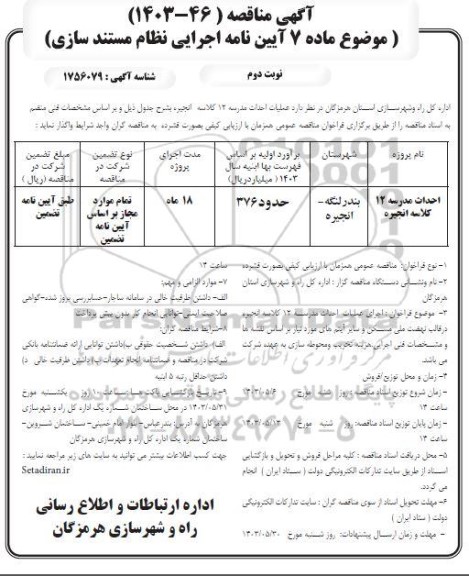 آگهی مناقصه ( ۴۶-۱۴۰۳)
( موضوع ماده ۷ آیین نامه اجرایی نظام مستند سازی)
نوبت دوم
شناسه آگهی : ۱۷۵۶۰۷۹
اداره کل راه وشهرسازی استان هرمزگان در نظر دارد عملیات احداث مدرسه ۱۲ کلاسه انجیره بشرح جدول ذیل و بر اساس مشخصات فنی منضم
به اسناد مناقصه را از طریق برگزاری فراخوان مناقصه عمومی همزمان با ارزیابی کیفی بصورت فشرده به مناقصه گران واجد شرایط واگذار نماید :
نام پروژه
شهرستان
برآورد اولیه بر اساس فهرست بها ابنیه سال ۱۴۰۳ ( میلیاردریال)
مدت اجرای پروژه
نوع تضمین شرکت در مناقصه
مبلغ تضمین شرکت در مناقصه (ریال )
احداث مدرسه ۱۲ کلاسه انجیره
بندرلنگه- انجیره
حدود۳۷۶
۱۸ ماه
تمام موارد مجاز بر اساس آیین نامه تضمین
طبق آیین نامه تضمین
۱- نوع فراخوان: مناقصه عمومی همزمان با ارزیابی کیفی بصورت فشرده
۲-نام ونشانی دستگاه مناقصه گزار : اداره کل راه و شهرسازی استان
هرمزگان
۳- موضوع فراخوان : اجرای عملیات احداث مدرسه ۱۲ کلاسه انجیره
درقالب نهضت ملی مسکن و سایر آیتم های مورد نیاز بر اساس نقشه ها
و مشخصات فنی اجرایی هزینه تخریب ومحوطه سازی به عهده شرکت
می باشد.
۴- زمان و محل توزیع /فروش
- زمان شروع توزیع اسناد مناقصه: روز شنبه مورخ ۱۴۰۳/۰۵/۰۶
ساعت ۱۴
- زمان پایان توزیع اسناد مناقصه: روز شنبه مورخ ۱۴۰۳/۰۵/۱۳
ساعت ۱۴
۵- محل دریافت اسناد مناقصه : کلیه مراحل فروش و تحویل و بازگشایی
اسناد از طریق سایت تدارکات الکترونیکی دولت ( ستاد ایران ) انجام
می گردد.
۶- مهلت تحویل اسناد از سوی مناقصه گران : سایت تدارکات الکترونیکی
دولت ( ستاد ایران )
- مهلت و زمان ارسال پیشنهادات: روز شنبه مورخ ۱۴۰۳/۰۵/۳۰
ساعت ۱۴
۷- موارد الزامی و مهم:
الف- داشتن ظرفیت خالی در سامانه ساجار-حسابرسی بروز شده-گواهی
صلاحیت ایمنی-توانایی انجام کار بدون پیش پرداخت
۸-شرایط مناقصه گران:
الف- داشتن شخصیت حقوقی ب)داشتن توانایی ارائه ضمانتنامه بانکی
شرکت در مناقصه و ضمانتنامه انجام تعهدات پ)داشتن ظرفیت خالی د)
داشتن حداقل رتبه ۵ ابنیه
۱۴۰۳/۰۵/۳۱ در محل ساختمان شماره یک اداره کل راه و شهرسازی
هرمزگان به آدرس: بندرعباس- بلوار امام خمینی- ساختمان شیروین-
ساختمان شماره یک اداره کل راه و شهرسازی هرمزگان
جهت کسب اطلاعات بیشتر می توانید به سایت های زیر مراجعه نمایید :
Setadiran.ir
اداره ارتباطات و اطلاع رسانی
راه و شهرسازی هرمزگان